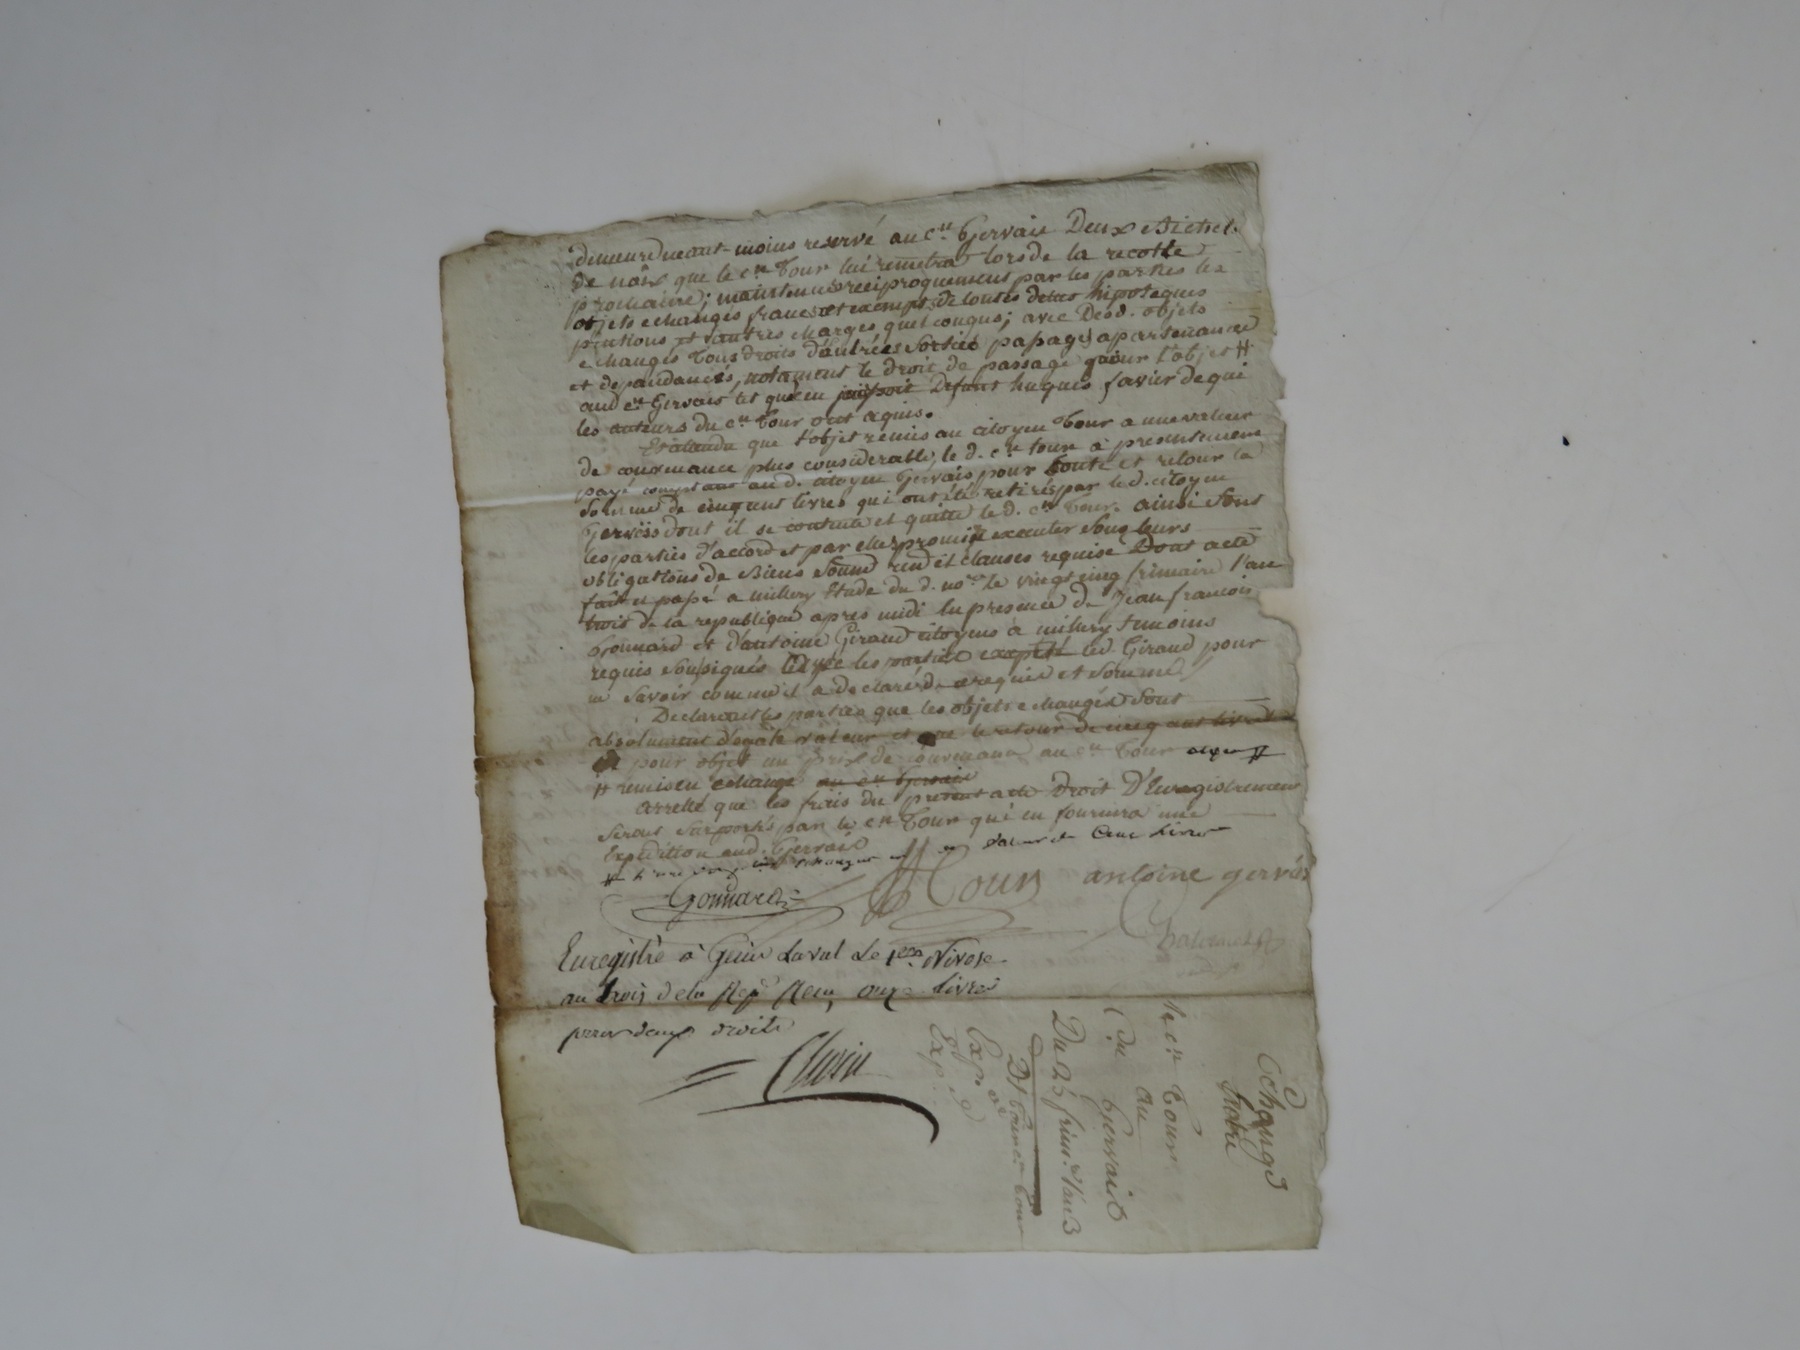 demeure neant-moins reservé au c.en Gervais Deux Bichets
de noix que le c.en Tour lui remettra lors de la recotte
prochaine; maintenues reciproquement par les parties les
objets echangés francs et exempts de toutes dettes hipoteques
pentions et autres charges quelconques; avec Desd. objets
echangés Tous droits d'entrées sorties passages apartenances
et dependances, notament le droit de passage pour l'objet #
aud c.en Gervais tel qu'en jouissoit Defunt hugues favier de qui
les auteurs du c.en Tour ont aquis.
Et attendu que l'objet remis au citoyen Tour a une valeur
de convenance plus considerable, le d. c.en tour à presentement
payé comptant au d. citoyen Gervais pour soute et retour la
somme de cinq cent livres qui ont été retirés par le d. citoyen
Gervais dont il se contente et quitte le d. c.en Tour. ainsi sont
les parties d'accord et par elles promis executer sous leurs
obligations de Biens soumd rend et clauses requise Dont acte
fait et passé a millery Etude du d. no.re le vingt cinq frimaire l'an
trois de la republique apres midi En presence de Jean françois
Gonnard et d'antoine Giraud citoyens à millery temoins
requis soussignés avec les parties excepté led. Giraud pour
ne savoir comme il a declaré de ce requis et sommé
Declarant les parties que les objets echangés sont
absolument d'egale valeur et que le retour de cinq cent livres
pour objet un prix de convenance au c.en Tour
# remis en echange au c.en Gervais
arretté que les frais du present acte Droit D'Enregistrement
seront suportés par le c.en Tour qui en fournira une
Expedition aud. Gervais
# valeur de Cinq Livres
Gonnard Tour antoine gervais
Enregistré à Genis Laval Le 1.er Nivose
an trois de la Rep.e Recu onze Livres
pour deux droits
Echange
Notre
le c.en Tour
au
C.en Gervais
Du 25 frim.re l'an 3
Exp.
Exp.